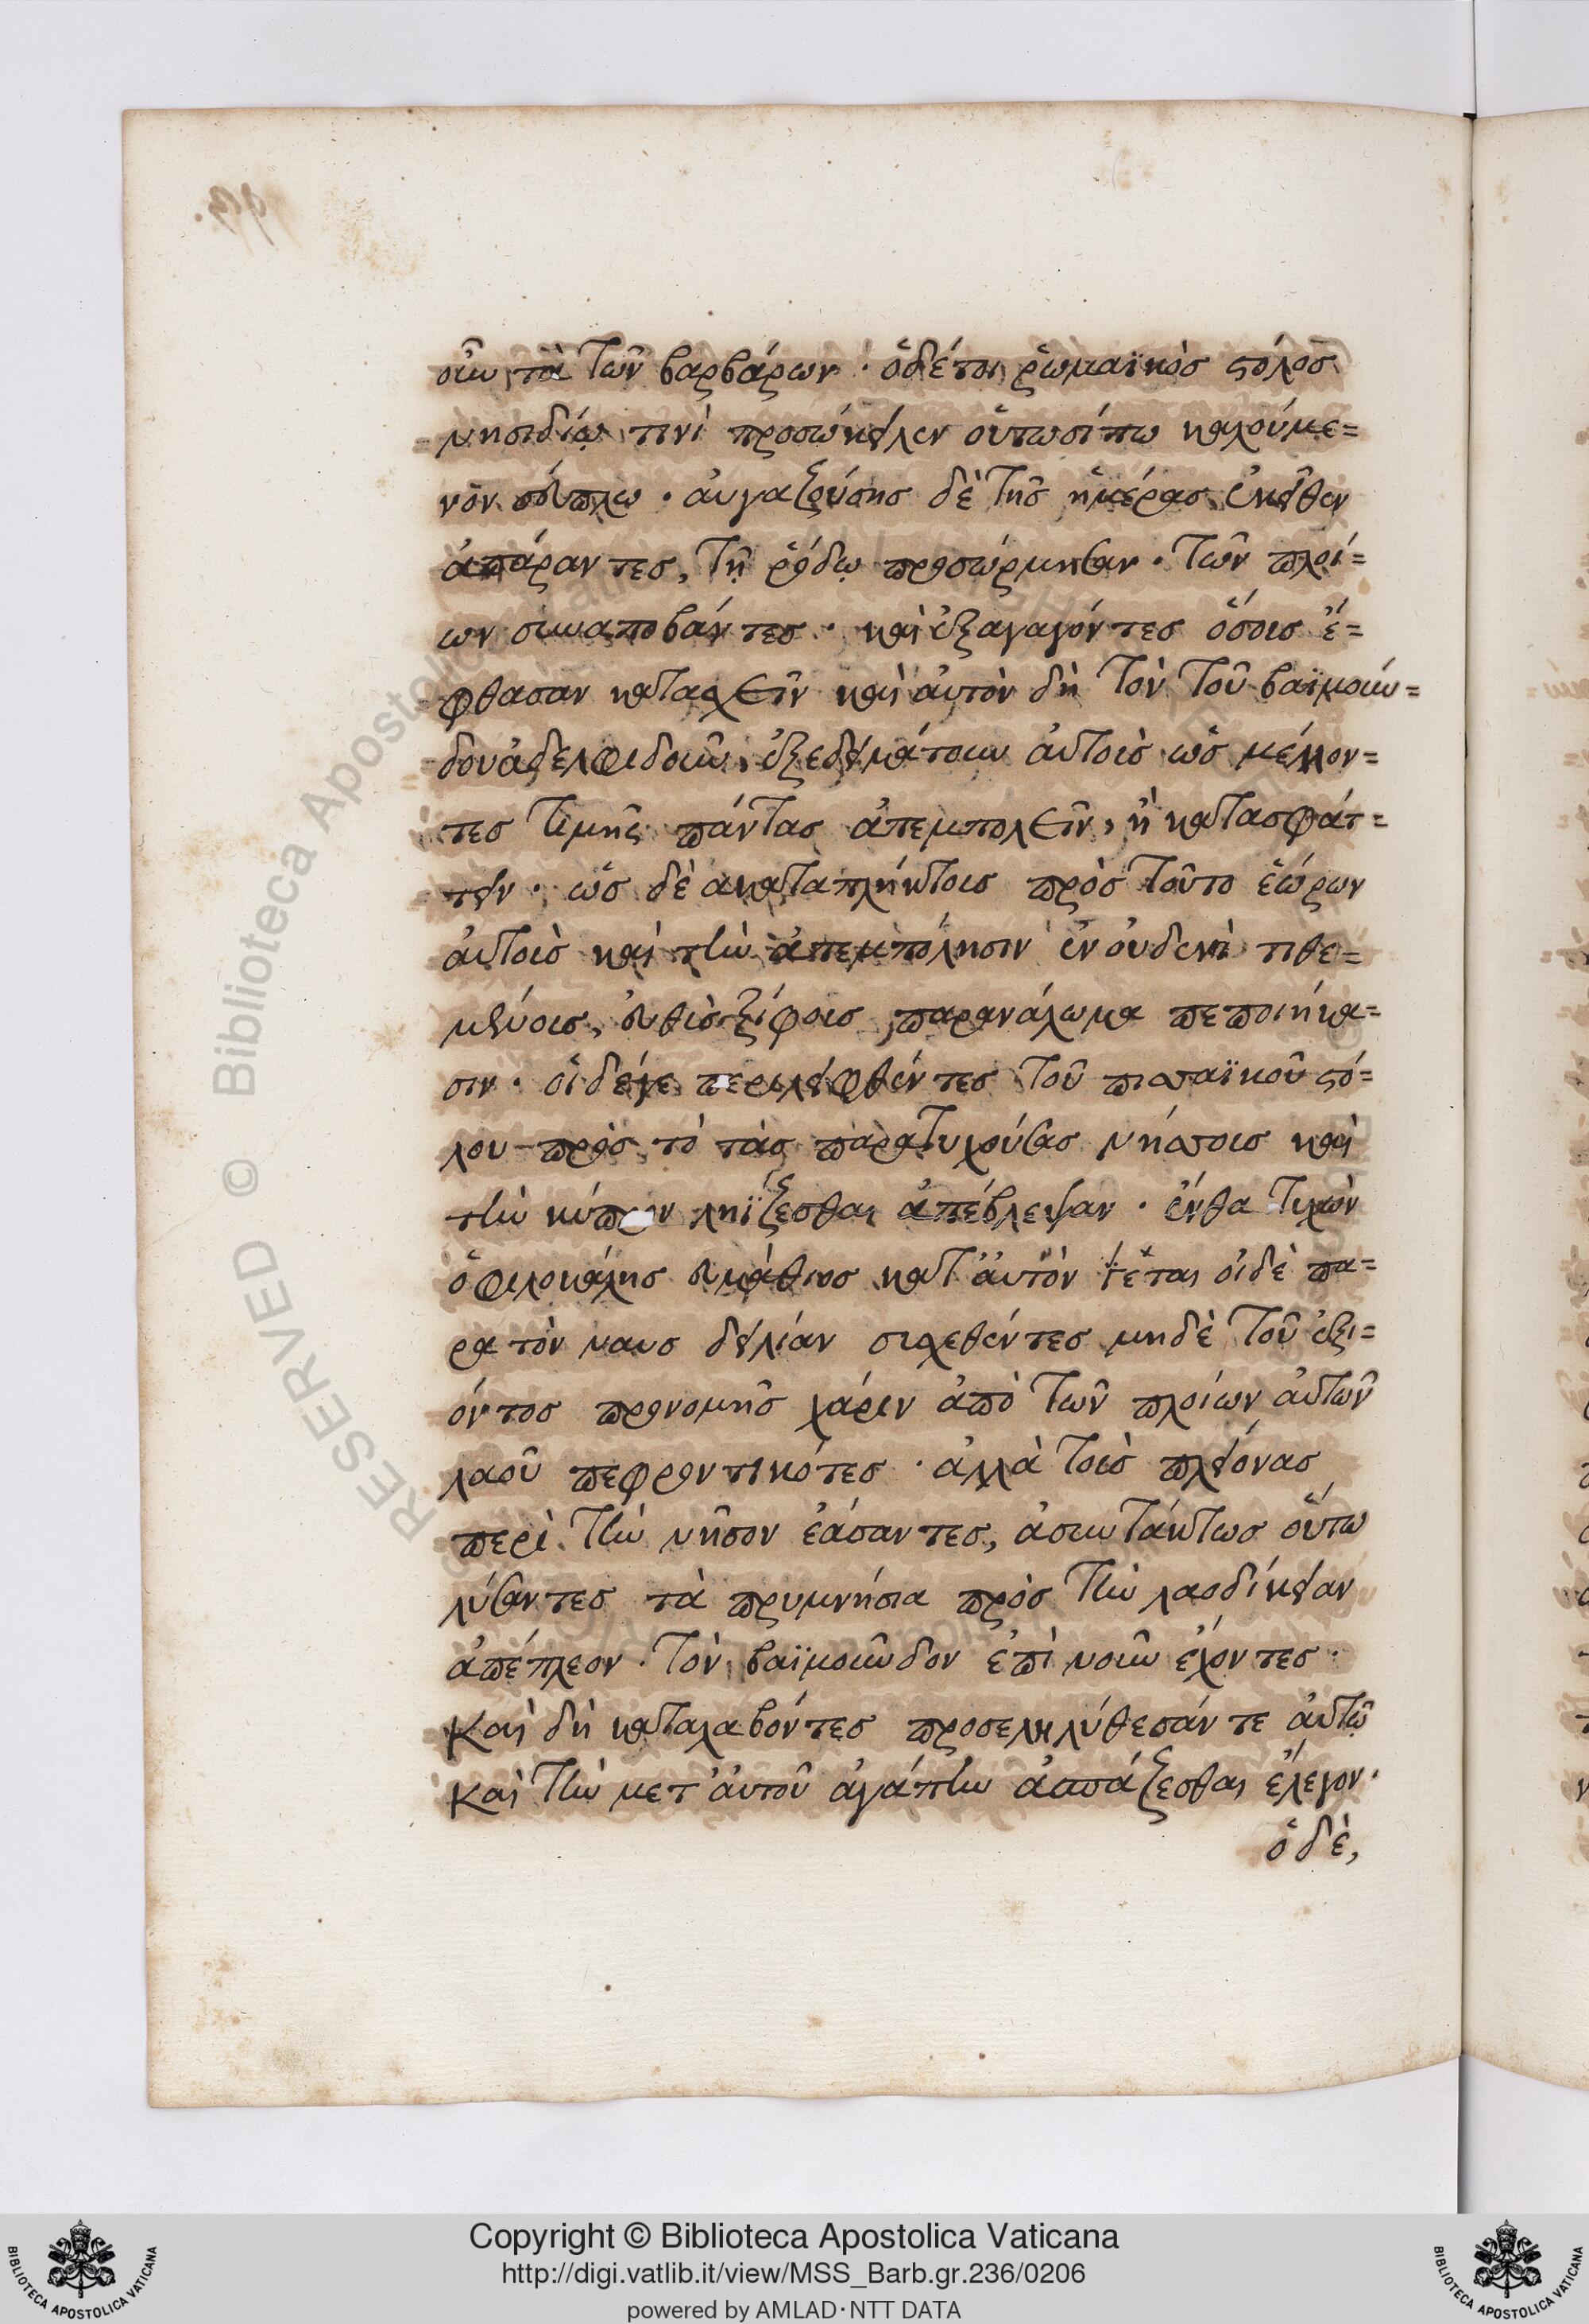 οὖν τὰ τῶν βαρβάρων · ὁδέτοι ῥωμαϊκὸσ στόλοσ
νησιδίῳ τινὶ προσώκειλεν οὑτωσίπω καλούμε=
νον σεύτλω · αὐγαζούσησ δὲ τῆσ ἡμέρασ ἐκεῖθεν
ἀπάραντεσ, τῇ ῥόδῳ προσώρμησαν · τῶν πλοί=
ων συναποβάντεσ · καὶ ἐξαγαγόντεσ ὅσουσ ἔ=
φθασαν κατασχεῖν καὶ αὐτὸν δὴ τὸν τοῦ βαϊμούν=
δου ἀδελφιδοῦν, ἐξεδειμάτουν αὐτοὺσ ὡσ μέλλον=
τεσ τιμῆς πάντασ ἀπεμπολεῖν, ἢ κατασφάτ=
τειν · ὡσ δὲ ακαταπλήκτουσ πρὸσ τοῦτο ἑώρων
αὐτοὺσ καὶ τὴν ἀπεμπόλησιν ἐν οὐδενὶ τιθε=
μένουσ, εὐθὺσ ξίφουσ παρανάλωμα πεποιήκα=
σιν · οἱ δέγε περιλειφθέντεσ τοῦ πισσαϊκοῦ στό=
λου πρὸσ τὸ τὰσ παρατυχούσασ νήσσουσ καὶ
τὴν κύπρον ληΐζεσθαι ἀπέβλεψαν · ἔνθα τυχὼν
ὁ φιλοκάλησ εὐμάθιοσ κατ' αὐτὸν ἵεται οἱ δὲ πα=
ρα τὸν ναυσ δειλίαν συχεθέντεσ μηδὲ τοῦ ἐξι=
όντοσ προνομῆσ χάριν ἀπὸ τῶν πλοίων αὐτῶν
λαοῦ πεφροντικότεσ · ἀλλὰ τοὺσ πλείονασ
περὶ τὴν νῆσον ἐάσαντεσ, ἀσυντάκτωσ οὕτω
λύσαντεσ τὰ πρυμνήσια πρὸσ τὴν λαοδίκειαν
ἀπέπλεον · τὸν βαϊμοῦνδον ἐπὶ νοῦν ἔχοντεσ ·
Καὶ δὴ καταλαβόντεσ προσεληλύθεσάν τε αὐτῷ
Καὶ τὴν μετ' αὐτοῦ ἀγάπην ἀσπάζεσθαι ἔλεγον ·
ὁ δὲ,
Copyright © Biblioteca Apostolica Vaticana
http://digi.vatlib.it/view/MSS_Barb.gr.236/0206
powered by AMLAD·NTT DATA